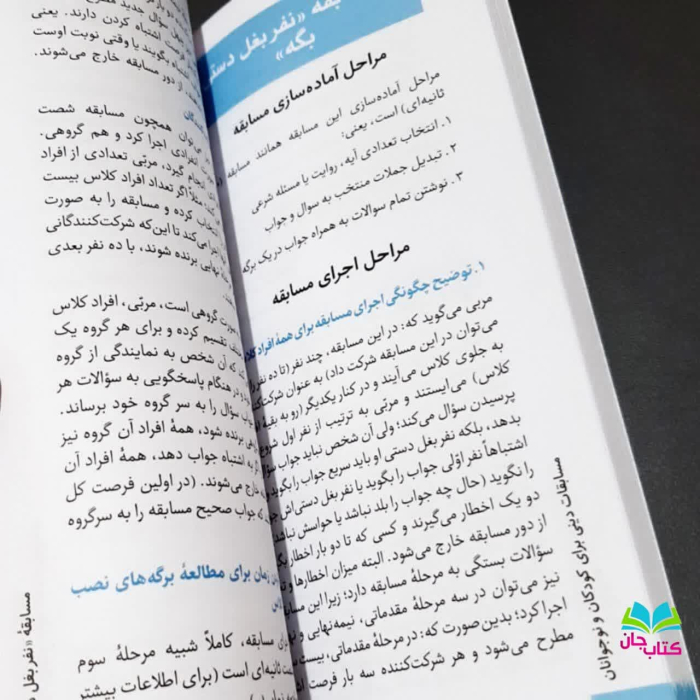 بقه «نفر بغل دستی
بگه»
مراحل آماده‌سازی مسابقه
مراحل آماده‌سازی این مسابقه همانند مسابقه
ثانیه‌ای) است، یعنی:
۱. انتخاب تعدادی آیه، روایت یا مسئله شرعی
۲. تبدیل جملات منتخب به سوال و جواب
۳. نوشتن تمام سوالات به همراه جواب در یک برگه
مراحل اجرای مسابقه
۱. توضیح چگونگی اجرای مسابقه برای همه افراد کلاس
مربی می‌گوید که: در این مسابقه، چند نفر (تا ده نفر
می‌توان در این مسابقه شرکت داد) به عنوان
به جلوی کلاس می‌آیند و در کنار یکدیگر (رو به بقیه
کلاس) می‌ایستند و مربّی به ترتیب از نفر اول شروع
پرسیدن سؤال می‌کند؛ ولی آن شخص نباید جواب
بدهد، بلکه نفر بغل دستی او باید سریع جواب را بگوید
اشتباهاً نفر اوّلی جواب را بگوید یا نفر بغل دستی‌اش
را نگوید (حال چه جواب را بلد نباشد یا حواسش نباشد
دو یک اخطار می‌گیرند و کسی که تا دو بار اخطار
از دور مسابقه خارج می‌شود. البته میزان اخطارها و
سؤالات بستگی به مرحلهٔ مسابقه دارد؛ زیرا این
نیز می‌توان در سه مرحلهٔ مقدماتی، نیمه‌نهایی و
اجرا کرد؛ بدین صورت که: در مرحلهٔ مقدماتی، بیست
مطرح می‌شود و هر شرکت‌کننده سه بار فرصت
مسابقات دینی برای کودکان و نوجوانان
سؤال جدید
فرصت اشتباه کردن دارند. یعنی
بگویند یا وقتی نوبت اوست
از دور مسابقه خارج می‌شوند.
همچون مسابقه شصت
انفرادی اجرا کرد و هم گروهی.
انجام گیرد، مربّی تعدادی از افراد
مثلاً اگر تعداد افراد کلاس بیست
کرده و مسابقه را به صورت
می‌کند تا این‌که شرکت‌کنندگانی
نهایی برنده شوند، با ده نفر بعدی
صورت گروهی است، مربّی، افراد کلاس
تقسیم کرده و برای هر گروه یک
که آن شخص به نمایندگی از گروه
در هنگام پاسخگویی به سؤالات هر
سؤال را به سر گروه خود برساند.
برنده شود، همهٔ افراد آن گروه نیز
به اشتباه جواب دهد، همهٔ افراد آن
خارج می‌شوند. (در اولین فرصت کل
که جواب صحیح مسابقه را به سرگروه
زمان برای مطالعهٔ برگه‌های نصب
مسابقه، کاملاً شبیه مرحلهٔ سوم
ثانیه‌ای است (برای اطلاعات بیشتر
مسابقهٔ «نفر بغل
کتاب جان